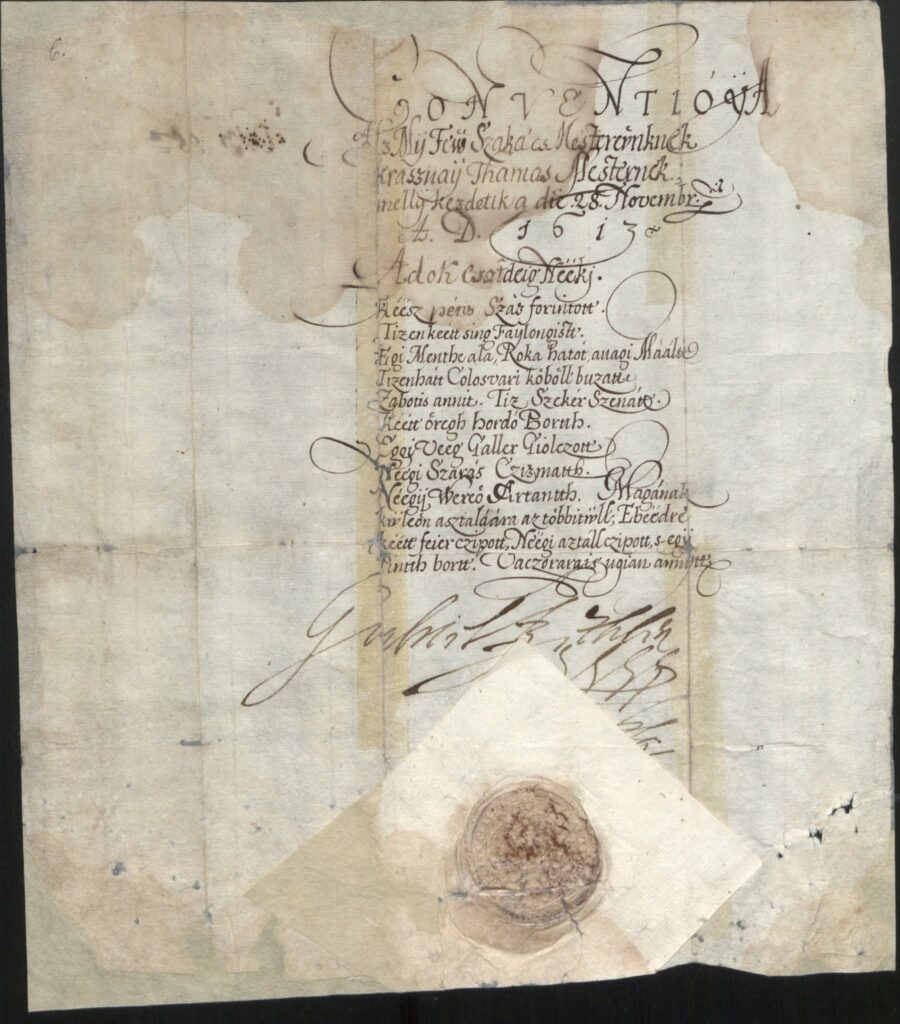 6.
CONVENTIÓYA
Az My Few Szakács Mesterewnknek
krassnaÿ Thamas Mesternek,
melly kezdetik a die 28. Novembr:
A. D. 1613
Adok esztdeig Nëëkj.
Këësz pënw Szäs forintott.
Tizenkeett sing Faylongist.
Egi Menthe ala, Roka hatot, auagi Máálit
Tizenhatt Colosvari köböll buzatt
Zabotis annit. Tiz Szekér Szenátt.
keett öregh hordó Borth.
Eggi Veeg Galler Giólczott
Neegi Szarás Czizmatth.
Neegÿ Wereö Artantth. Magának
kwleön asztaldára az többitwll; Ebëëdre
këëtt feier czipott, Nëëgi aztäll czipott, s egÿ
Pintth bortt. Vaczórarais ugian annitt
Gabriel Bethlen